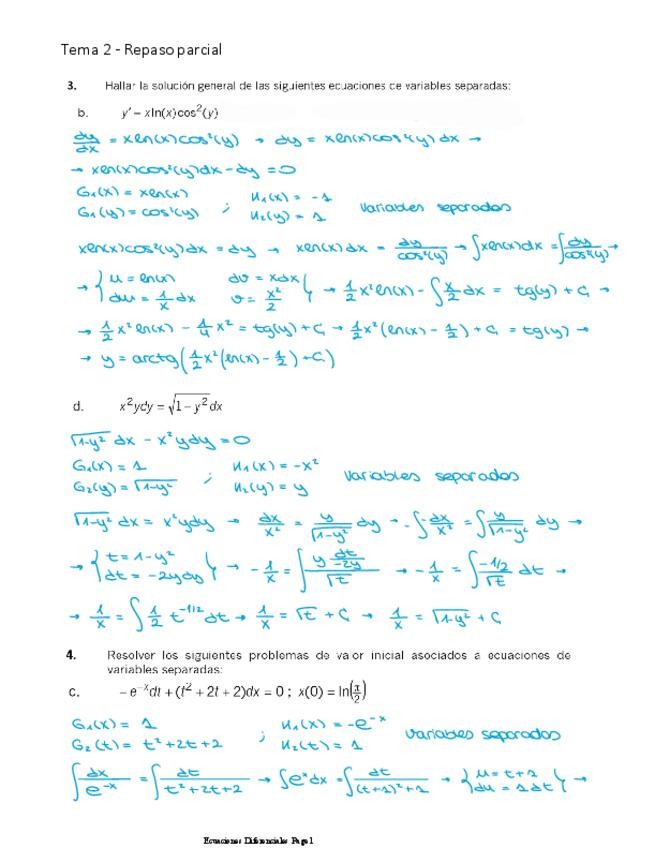 Tema 2 - Repaso parcial
3. Hallar la solución general de las siguientes ecuaciones de variables separadas:
b. y' = xln(x)cos²(y)
dy/dx = xln(x)cos²(y) → dy = xln(x)cos²(y) dx →
→ xln(x)cos²(y)dx - dy = 0
G₁(x) = xln(x) ; H₁(x) = -1
G₁(y) = cos²(y) H₂(y) = 1 variables separadas
xln(x)cos²(y)dx = dy → xln(x)dx = dy/cos²(y) → ∫xln(x)dx = ∫dy/cos²(y) →
→ { u = ln(x) dv = xdx
du = 1/x dx v = x²/2 } → 1/2 x² ln(x) - ∫x/2 dx = tg(y) + C₁ →
→ 1/2 x² ln(x) - 1/4 x² = tg(y) + C₁ → 1/2 x² (ln(x) - 1/2) + C₁ = tg(y) →
→ y = arctg(1/2 x² (ln(x) - 1/2) + C₁)
d. x²ydy = √1 - y² dx
√1-y² dx - x² y dy = 0
G₁(x) = 1 ; H₁(x) = -x²
G₂(y) = √1-y² H₂(y) = y variables separadas
√1-y² dx = x²ydy → dx/x² = y/√1-y² dy → -∫-dx/x² = ∫y/√1-y² dy →
→ { t = 1-y²
dt = -2ydy } → -1/x = ∫ y dt/-2y / √t → -1/x = ∫ -1/2/√t dt →
→ 1/x = ∫ 1/2 t^-1/2 dt → 1/x = √t + C₁ → 1/x = √1-y² + C₁
4. Resolver los siguientes problemas de valor inicial asociados a ecuaciones de
variables separadas:
c. - e⁻ˣdt + (t² + 2t + 2)dx = 0 ; x(0) = ln(π/2)
G₁(x) = 1 ; H₁(x) = -e⁻ˣ
G₂(t) = t² + 2t + 2 H₂(t) = 1 variables separadas
∫dx/e⁻ˣ = ∫dt/t² + 2t + 2 → ∫eˣdx = ∫dt/(t+1)² + 1 → { u = t + 1
du = 1dt } →
Ecuaciones Diferenciales Page 1